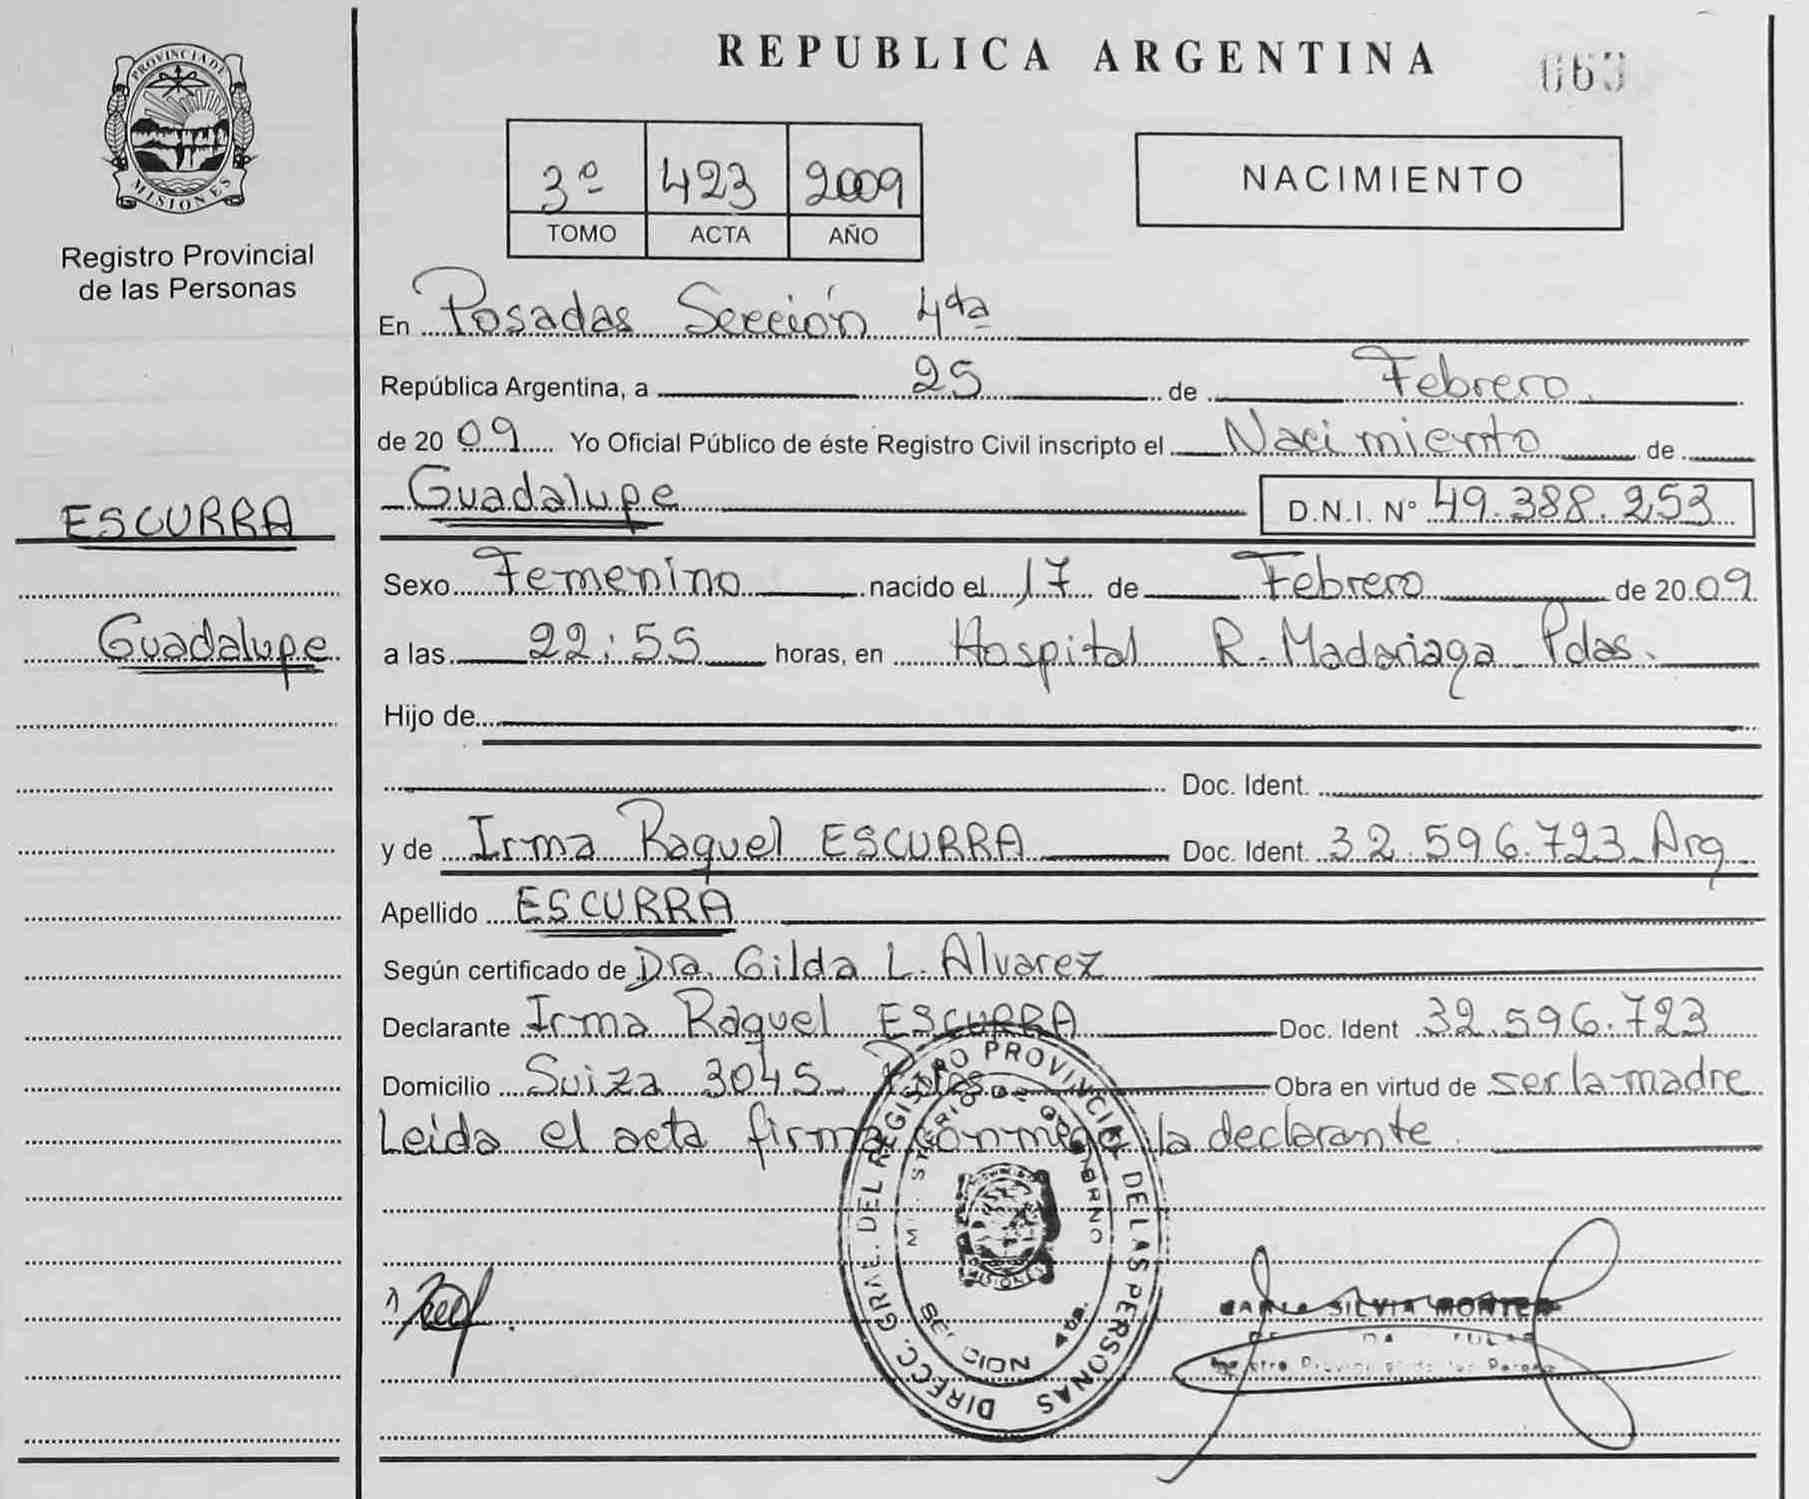 REPUBLICA ARGENTINA
063
PROVINCIA DE
MISIONES
Registro Provincial
de las Personas
3º 423 2009
TOMO ACTA AÑO
NACIMIENTO
En Posadas Sección 4ta
República Argentina, a 25 de Febrero
de 2009 Yo Oficial Público de éste Registro Civil inscripto el Nacimiento de
Guadalupe D.N.I. Nº 49.388.253
ESCURRA
Guadalupe
Sexo Femenino nacido el 17 de Febrero de 2009
a las 22:55 horas, en Hospital R. Madariaga Pdas.
Hijo de
Doc. Ident.
y de Irma Raquel ESCURRA Doc. Ident. 32.596.723 Arg
Apellido ESCURRA
Según certificado de Dra. Gilda L. Alvarez
Declarante Irma Raquel ESCURRA Doc. Ident 32.596.723
Domicilio Suiza 3045 Pdas Obra en virtud de ser la madre
Leida el acta firma conmigo la declarante.
DIRECC. GRAL. DEL REGISTRO PROVINCIAL DE LAS PERSONAS
MINISTERIO DE GOBIERNO
MISIONES
SECCION 4ta.
SILVIA